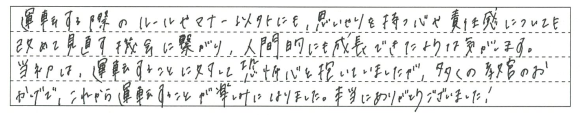 運転する際のルールやマナー以外にも、思いやりを持つ心や責任感についても
改めて見直す機会に繋がり、人間的にも成長できたような気がします。
当初は、運転することに対して恐怖心を抱いていましたが、多くの教官のお
かげで、これから運転することが楽しみになりました。本当にありがとうございました!